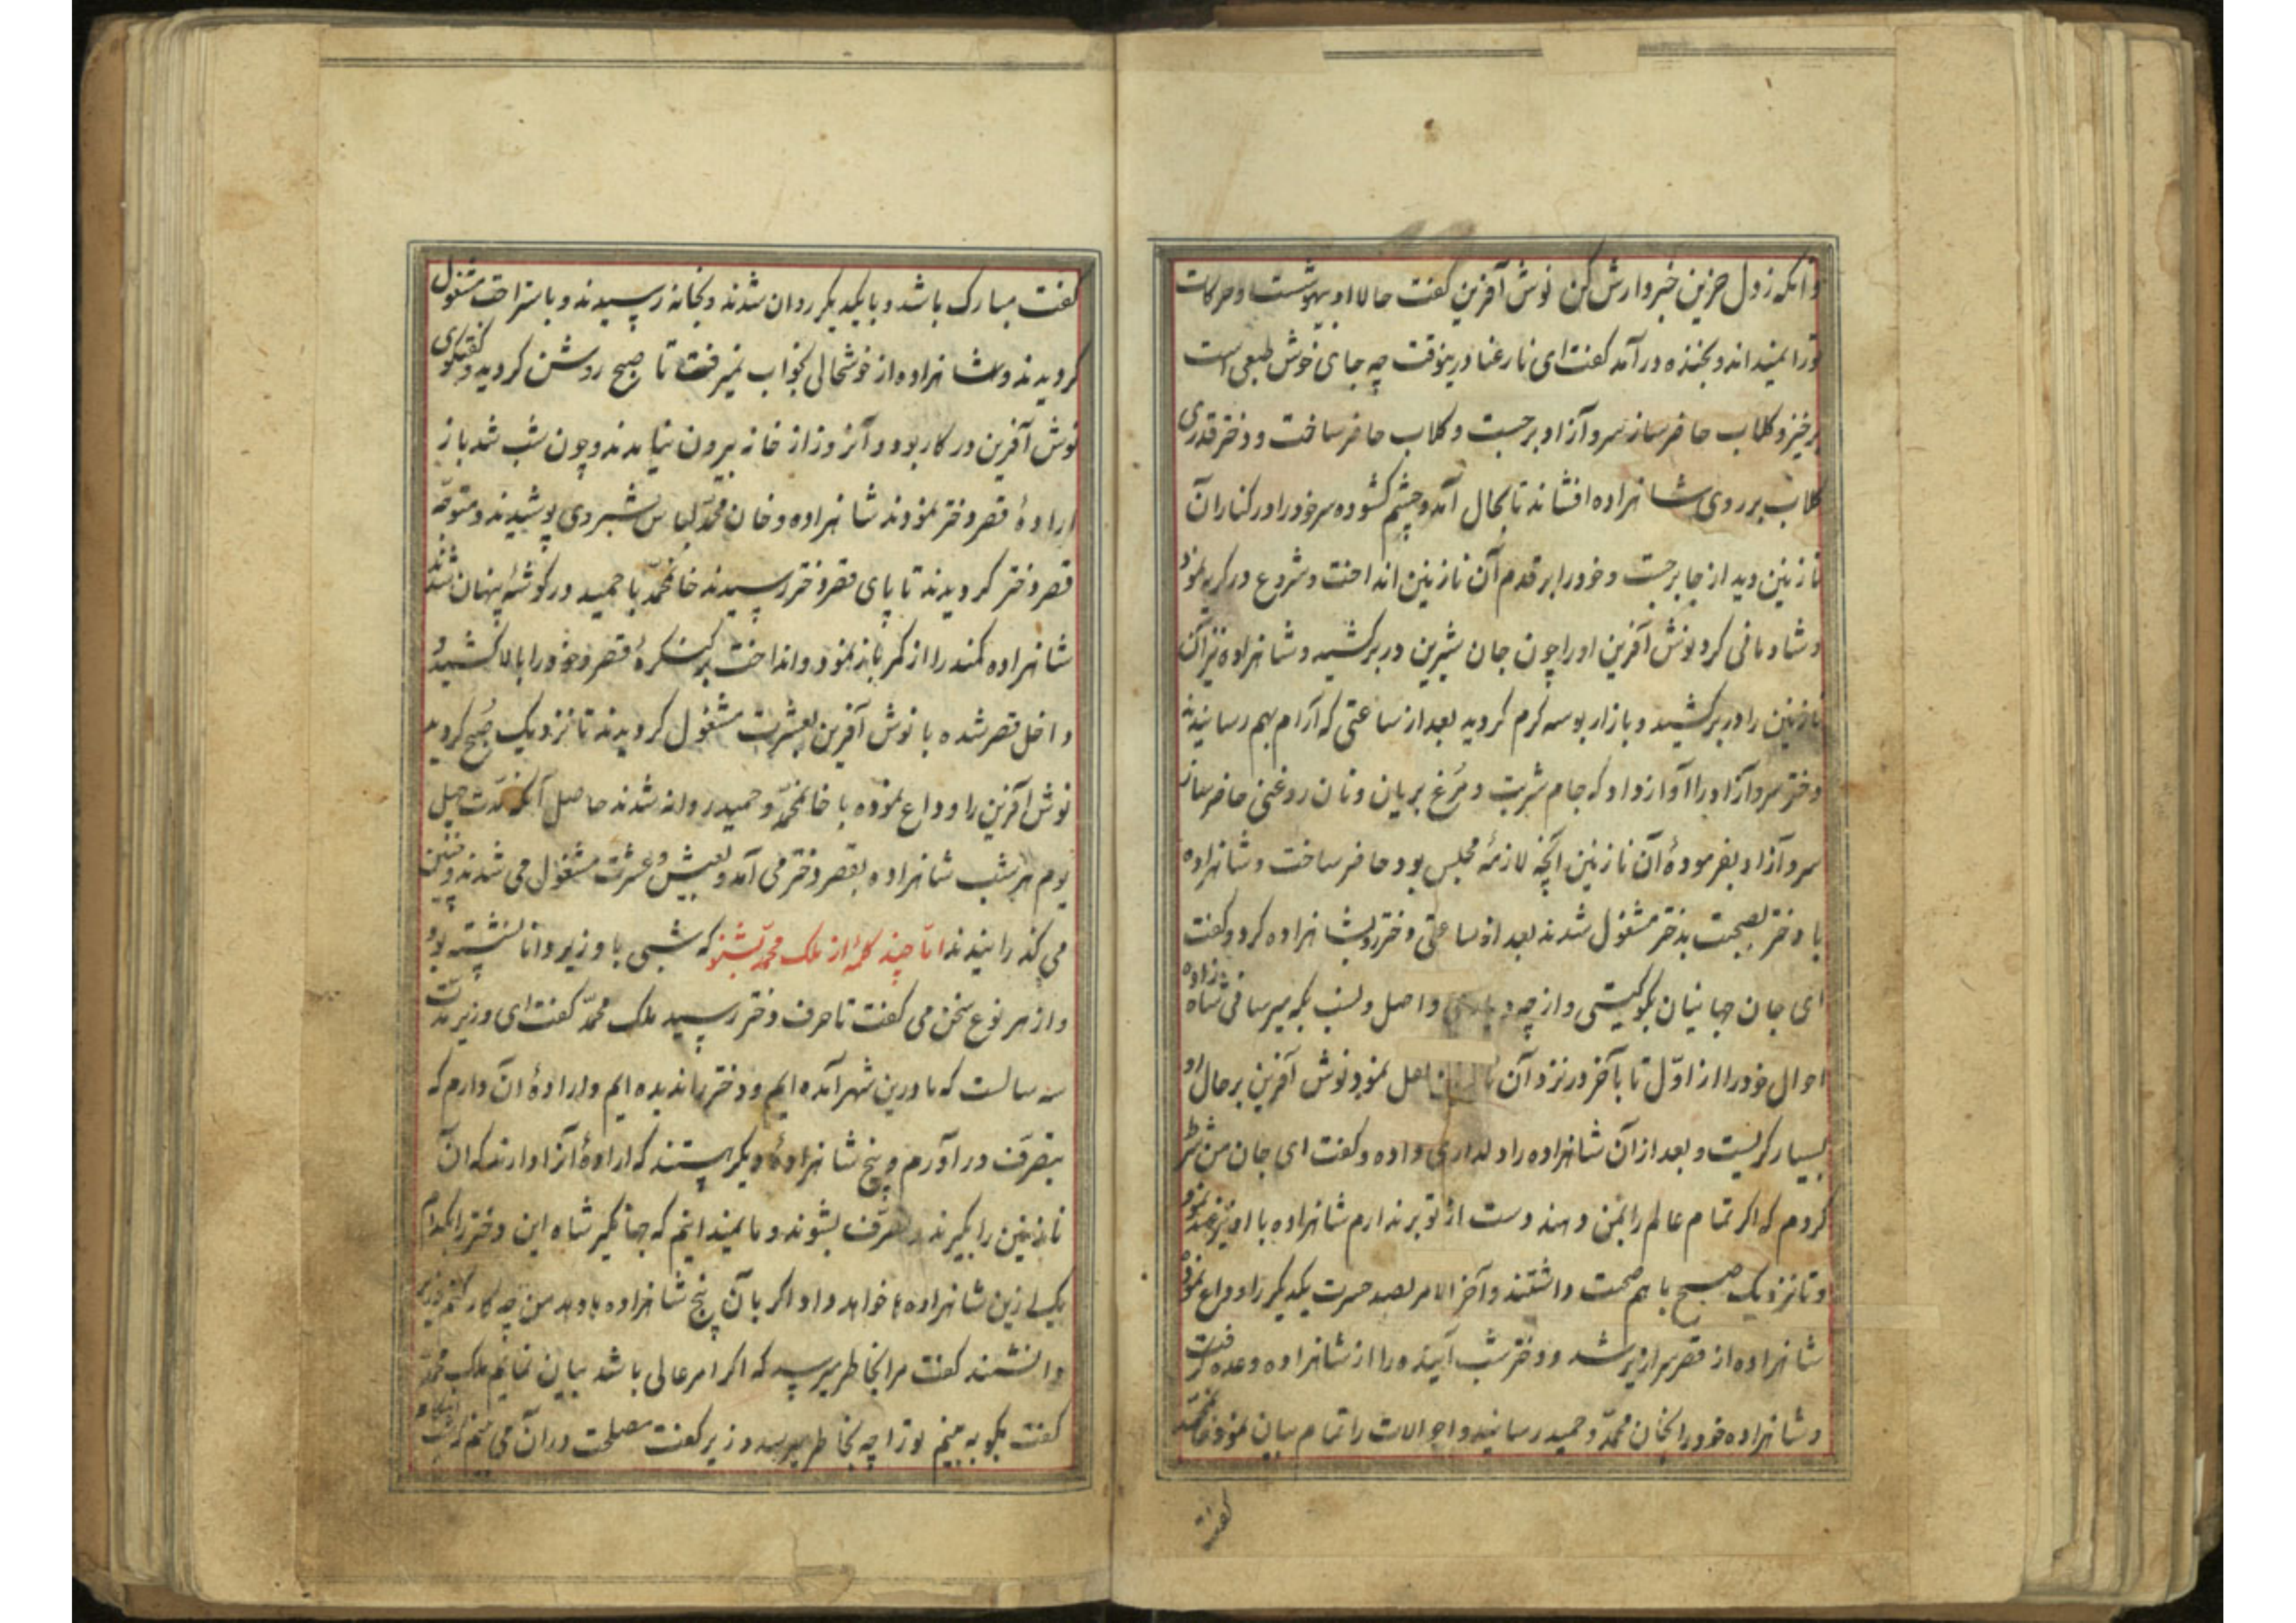 وانکه زدل حزین خبردارش کن نوش آفرین کفت حالا او بیهوشست و حرکات
ترا نمیداند و بخنده درآمد کفت ای نارعنا درینوقت چه جای خوش طبعی است
برخیز و کلاب حاضر ساز سرو آزاد برجست و کلاب حاضر ساخت و دختر قدری
کلاب بر روی شاهزاده افشاند تا بحال آمد و چشم کشوده سر خود را در کنار آن
نازنین دید از جا برجست و خود را بر قدم آن نازنین انداخت و شروع در کریه نمود
و شادمانی کرد نوش آفرین او را چون جان شیرین در بر کشید و شاهزاده نیز آن
نازنین را در بر کشید و بازار بوسه کرم کردید بعد از ساعتی که آرام بهم رسانیدند
دختر سرو آزاد را آواز داد که جام شربت و مرغ بریان و نان روغنی حاضر ساز
سرو آزاد بفرمودهٔ آن نازنین آنچه لازمهٔ مجلس بود حاضر ساخت و شاهزاده
با دختر بصحبت مشغول شدند بعد از ساعتی دختر رو بشاهزاده کرد و کفت
ای جان جهانیان بکو کیستی و از چه دیاری و اصل و نسب بکه میرسانی شاهزاده
احوال خود را از اوّل تا بآخر در نزد آن نازنین نقل نمود و نوش آفرین بر حال او
بسیار کریست و بعد از آن شاهزاده را دلداری داده و کفت ای جان من شرط
کردم که اکر تمام عالم را بمن دهند دست از تو برندارم شاهزاده با او نیز عهد نمود
و تا نزدیک صبح با هم صحبت داشتند و آخر الامر بصد حسرت یکدیکر را وداع نمود
شاهزاده از قصر سرازیر شد و دختر شب آینده را از شاهزاده وعده کرفت
و شاهزاده خود را بخان محمّد و حمید رسانید و احوالات را تمام بیان نمود خانمحمّد
کفت
کفت مبارک باشد و با یکدیکر روان شدند و بخانه رسیدند و باستراحت مشغول
کردیدند و شاهزاده از خوشحالی بخواب نمیرفت تا صبح روشن کردید و کفتکوی
نوش آفرین در کار بود و آنروز از خانه بیرون نیامدند و چون شب شد باز
ارادهٔ قصر دختر نمودند شاهزاده و خان محمّد لباس شبروی پوشیدند و متوجّه
قصر دختر کردیدند تا پای قصر دختر رسیدند خانمحمّد با حمید در کوشهٔ پنهان شدند
شاهزاده کمند را از کمر باز نمود و انداخت بر کنکرهٔ قصر و خود را بالا کشید و
داخل قصر شده با نوش آفرین بعشرت مشغول کردیدند تا نزدیک صبح کردید
نوش آفرین را وداع نموده با خانمحمّد و حمید روانه شدند حاصل آنکه مدّت چهل
یوم هر شب شاهزاده بقصر دختر می آمد و بعیش و عشرت مشغول می شدند و چنین
می کذرانیدند امّا چند کلمهٔ از ملک محمّد بشنو که شبی با وزیر دانا نشسته بود
و از هر نوع سخن می کفت تا حرف دختر رسید ملک محمّد کفت ای وزیر مدّت
سه سالست که ما درین شهر آمده ایم و دختر را ندیده ایم و ارادهٔ آن دارم که
بتصرّف در آورم و پنج شاهزادهٔ دیکر هستند که ارادهٔ آنرا دارند که آن
نازنین را بکیرند و متصرّف بشوند و ما نمیدانیم که جهانکیر شاه این دختر را بکدام
یک ازین شاهزاده ها خواهد داد اکر بآن پنج شاهزاده بدهد من چه کار کنم وزیر
دانشمند کفت مرا بخاطر میرسد که اکر امر عالی باشد بیان نمایم ملک محمّد
کفت بکو به بینم ترا چه بخاطر میرسد وزیر کفت مصلحت در آن می بینم که